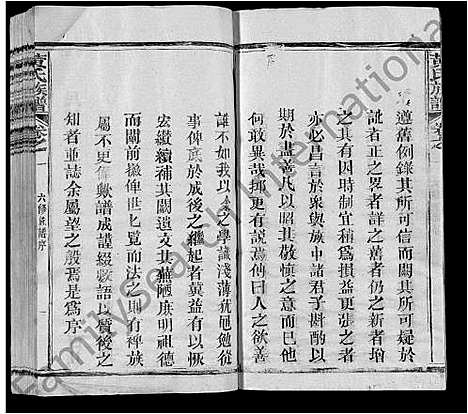 黃氏族譜
卷之一
遵舊例錄其所可信而闕其所可疑於
者正之畧者詳之舊者仍之新者增
之其有因時制宜稍為損益更張之者
亦必昌言於衆與族中諸君子斟酌以
期於盡善凡以昭其敬慎之意而已亦
何敢異哉抑更有說焉傳曰人之欲善
誰不如我以余學識淺薄猶黽勉從
事俾底於成後之繼起者冀益有以恢
宏纘續補其闕遺文其蕪陋庶明祖德
而闡前徽俾世匕覽而法之則有裨族
屬不更多歟譜成謹綴數語以質後之
知者並誌余屬望之殷焉是為序
黃氏族譜
卷之一
六修族譜序
FamilySearch International